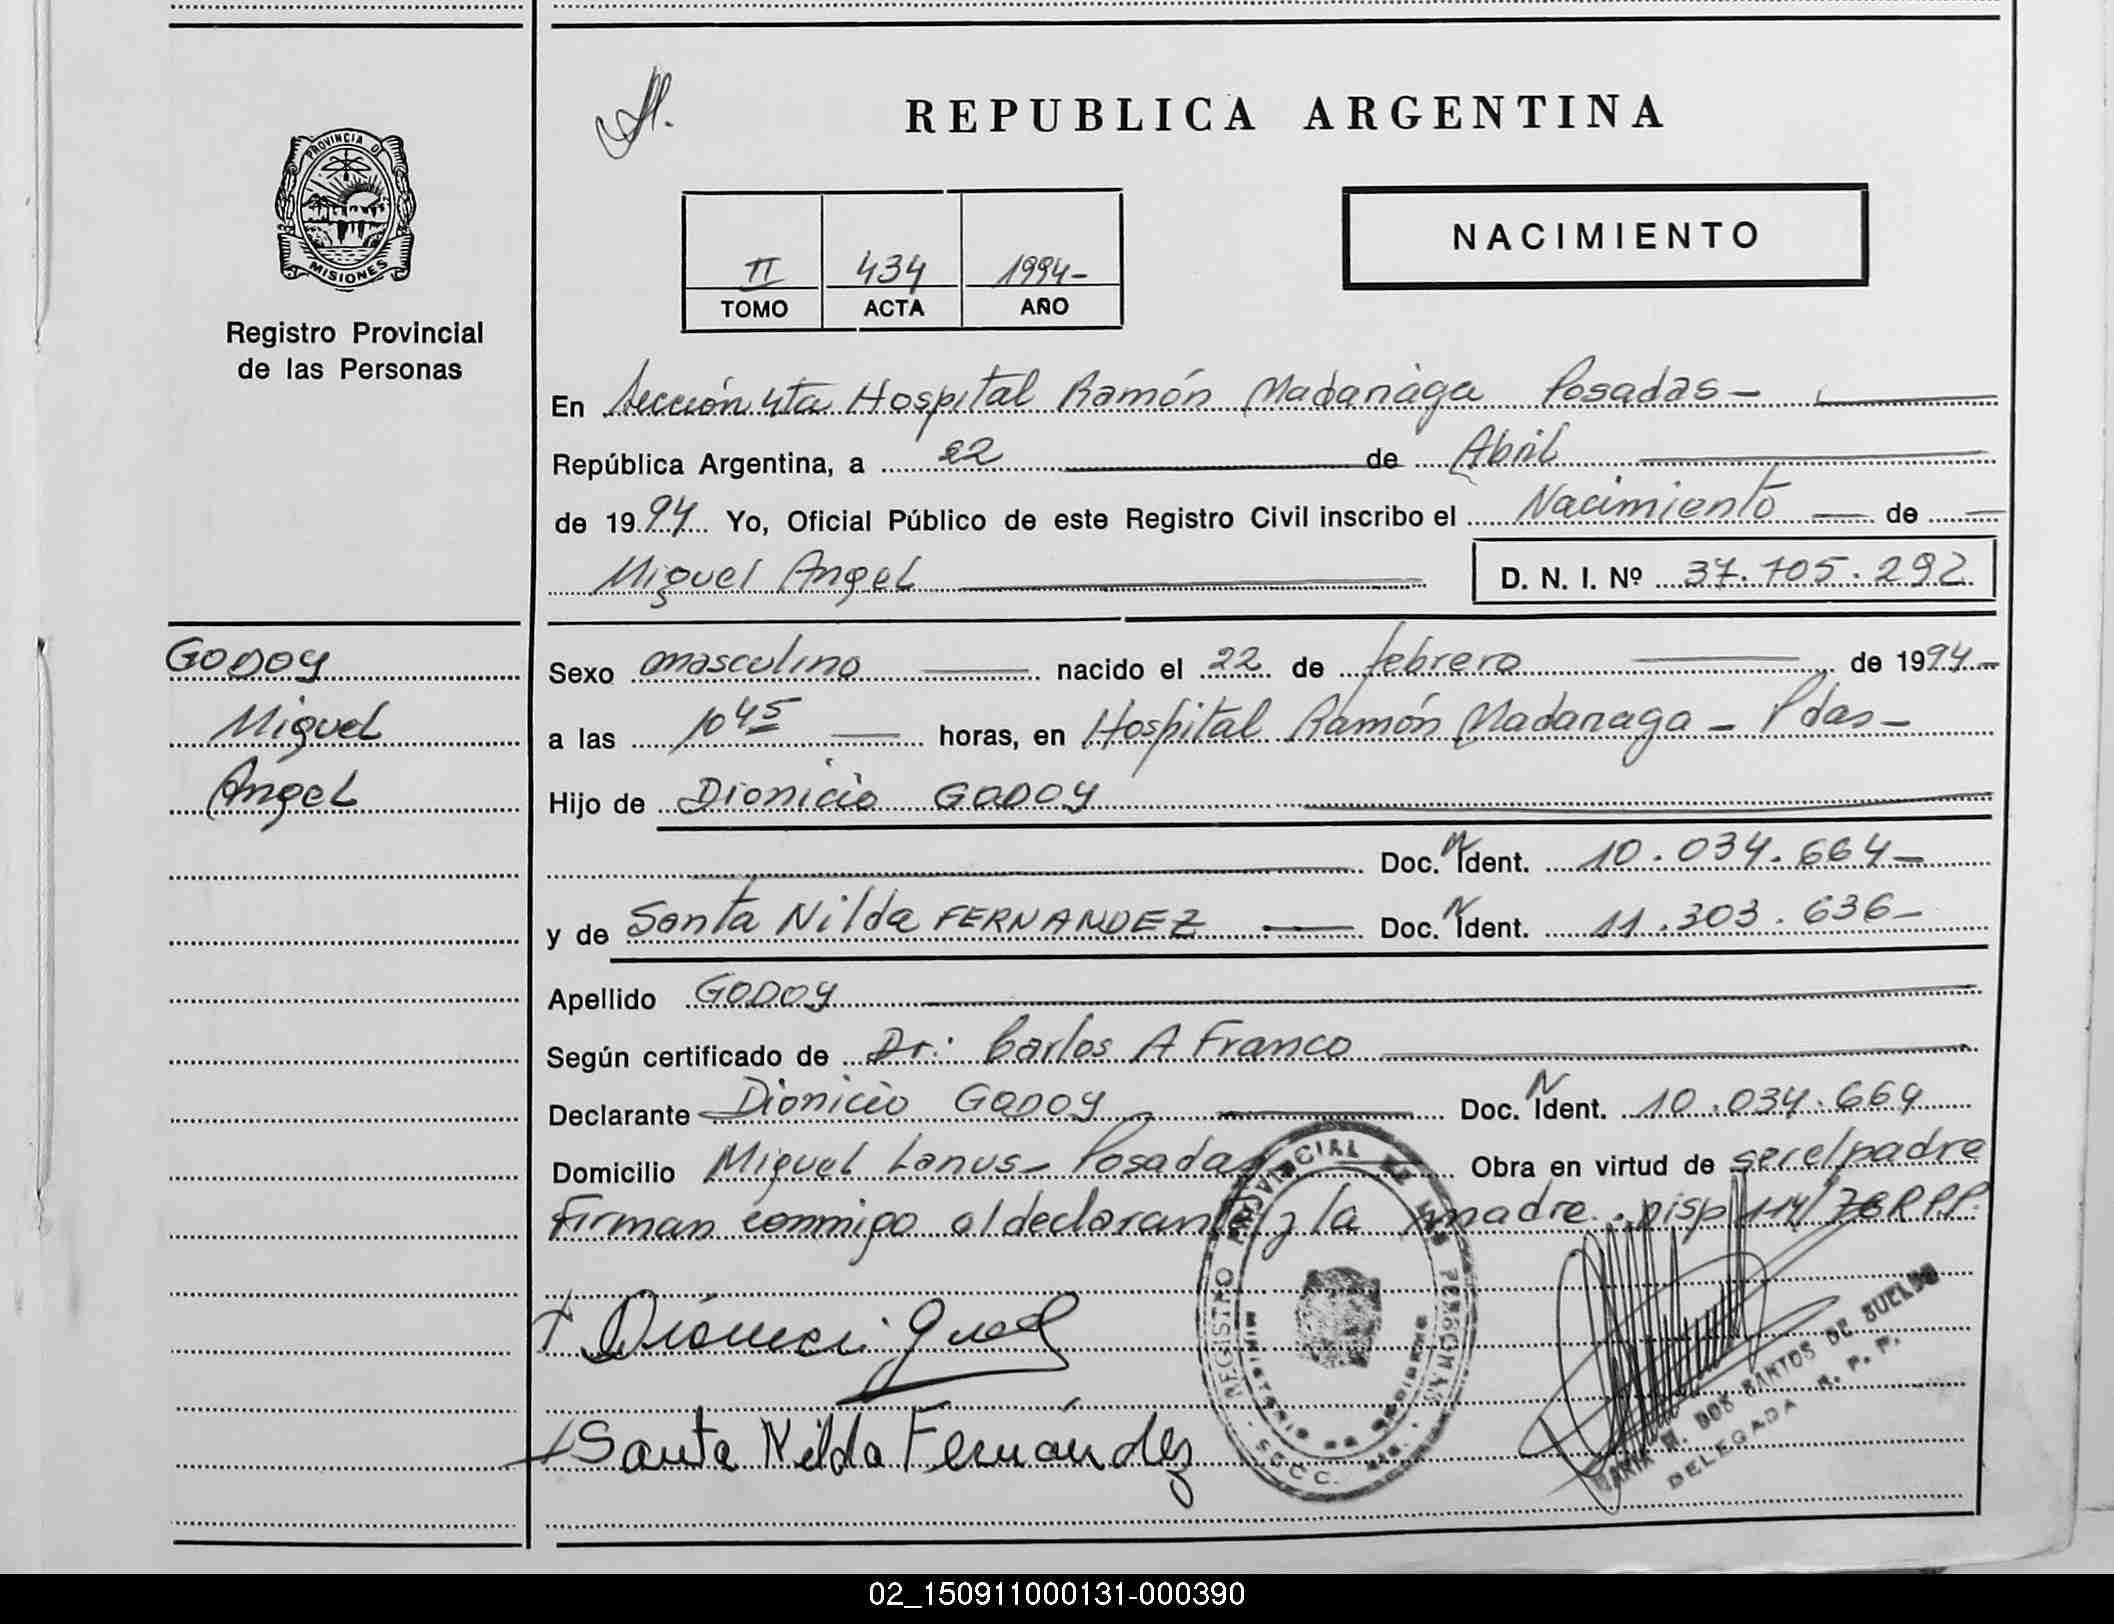 REPUBLICA ARGENTINA
PROVINCIA D
MISIONES
Registro Provincial
de las Personas
NACIMIENTO
II 434 1994-
TOMO ACTA AÑO
En Sección 4ta Hospital Ramón Madariaga Posadas-
República Argentina, a 22 de Abril
de 1994 Yo, Oficial Público de este Registro Civil inscribo el Nacimiento de
Miguel Angel D. N. I. Nº 37.705.292
GODOY
Miguel
Angel
Sexo masculino nacido el 22 de febrero de 1994-
a las 10 45 horas, en Hospital Ramón Madariaga - Pdas-
Hijo de Dionicio GODOY
Doc. N Ident. 10.034.664-
y de Santa Nilda FERNANDEZ Doc. N Ident. 11.303.636-
Apellido GODOY
Según certificado de Dr: Carlos A Franco
Declarante Dionicio GODOY Doc. N Ident. 10.034.664
Domicilio Miguel Lanus- Posadas Obra en virtud de ser el padre
Firman conmigo el declarante y la madre. Disp 114/78 R.P.P.
Santa Nilda Fernández
REGISTRO PROVINCIAL DE LAS PERSONAS
MINISTERIO DE GOBIERNO
SECC.
MARIA M. DOS SANTOS DE SUELDO
DELEGADA R. P. P.
02_150911000131-000390